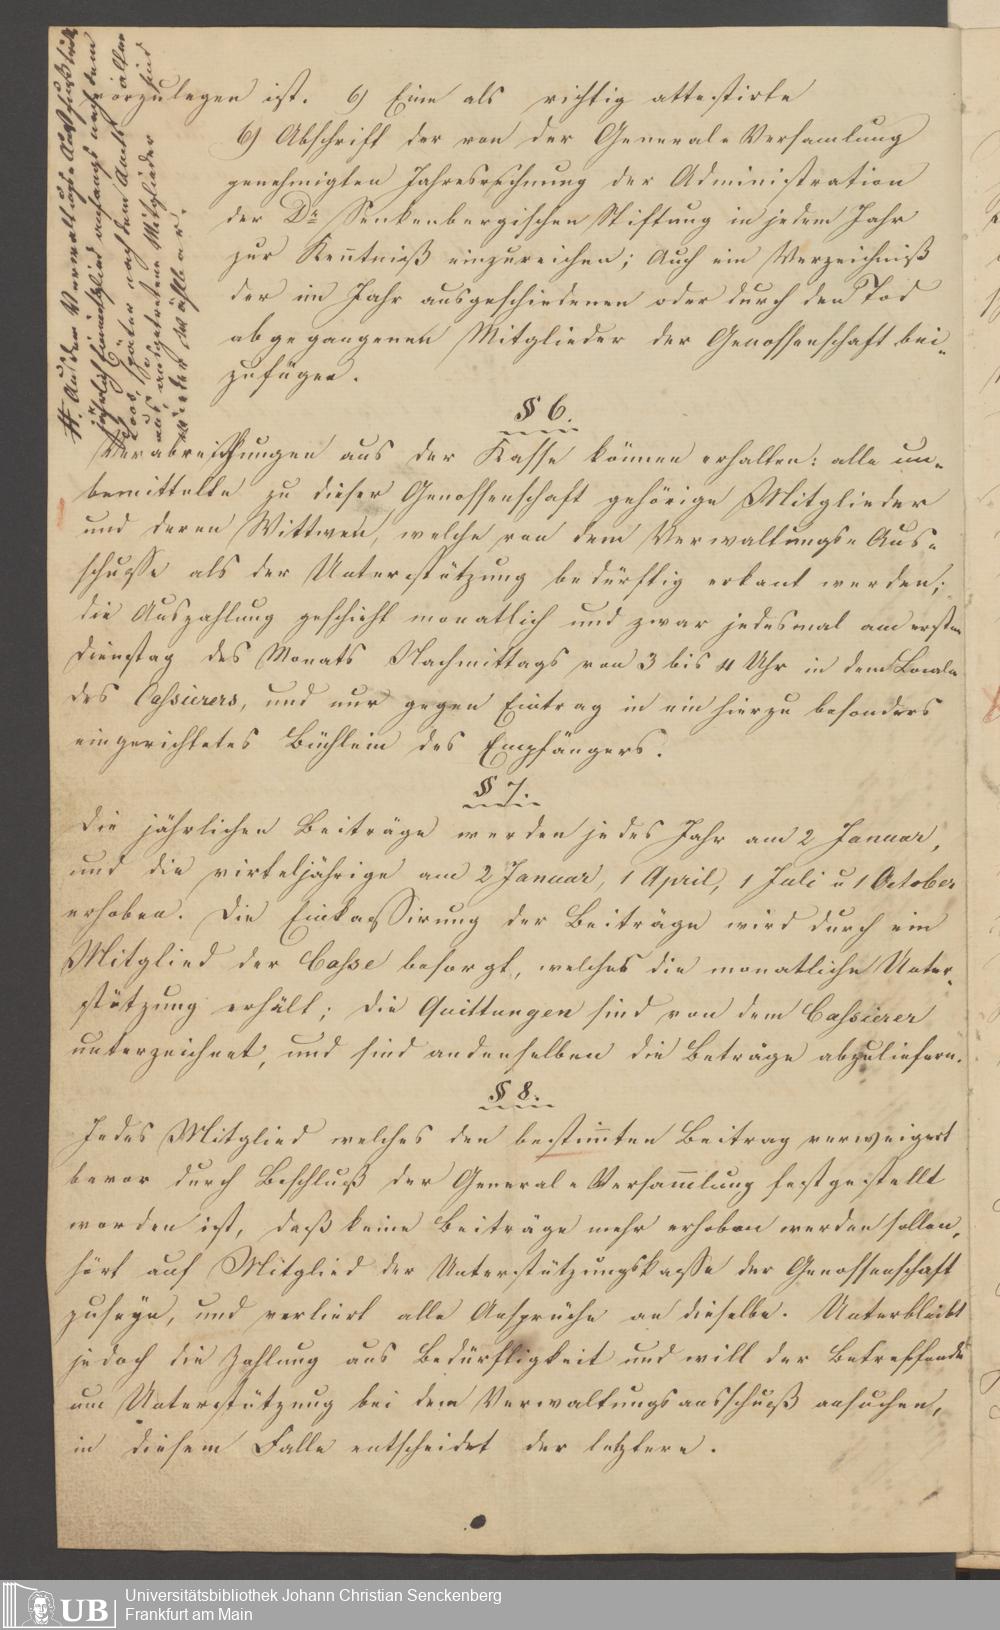 vorzulegen ist. 6) Eine als richtig attestirte
6) Abschrift der von der General-Versamlung
genehmigten Jahresrechnung der Administration
der Dr Senkenbergischen Stiftung in jedem Jahr
zur Kenntniß einzureichen; Auch ein Verzeichniß
der im Jahr ausgeschiedenen oder durch den Tod
abgegangenen Mitglieder der Genossenschaft bei-
zufügen.
§ 6.
Verabreichungen aus der Kasse können erhalten: alle un-
bemittelte zu dieser Genossenschaft gehörige Mitglieder
und deren Wittwen, welche von dem Verwaltungs-Aus-
schusse als der Unterstützung bedürftig erkant werden;
die Auszahlung geschieht monatlich und zwar jedesmal am ersten
Dienstag des Monats Nachmittags von 3 bis 4 Uhr in dem Locale
des Cassierers, und nur gegen Eintrag in ein hierzu besonders
eingerichtetes Büchlein des Empfängers.
§ 7.
Die jährlichen Beiträge werden jedes Jahr am 2 Januar,
und die virteljährige am 2 Januar, 1 April, 1 Juli u 1 October
erhoben. Die Einkassirung der Beiträge wird durch ein
Mitglied der Casse besorgt, welches die monatliche Unter-
stützung erhält; die Quittungen sind von dem Cassierer
unterzeichnet, und sind an denselben die Beträge abzuliefern.
§ 8.
Jedes Mitglied welches den bestimten Beitrag verweigert
bevor durch Beschluß der General-Versam̄lung festgestellt
worden ist, daß keine Beiträge mehr erhoben werden sollen,
hört auf Mitglied der Unterstützungskasse der Genossenschaft
zu seyn, und verliert alle Ansprüche an dieselbe. Unterbleibt
jedoch die Zahlung aus Bedürftigkeit und will der Betreffende
um Unterstützung bei dem Verwaltungsausschuß ansuchen,
in diesem Falle entscheidet der letztere.
#. Aus dem Verwaltungs-Ausschuß tritt
jährlich ein Mitglied anfangs nach dem
Loos, später nach dem Amts alter
aus, ausgetretene Mitglieder sind
wieder wählbar.
UB
Universitätsbibliothek Johann Christian Senckenberg
Frankfurt am Main